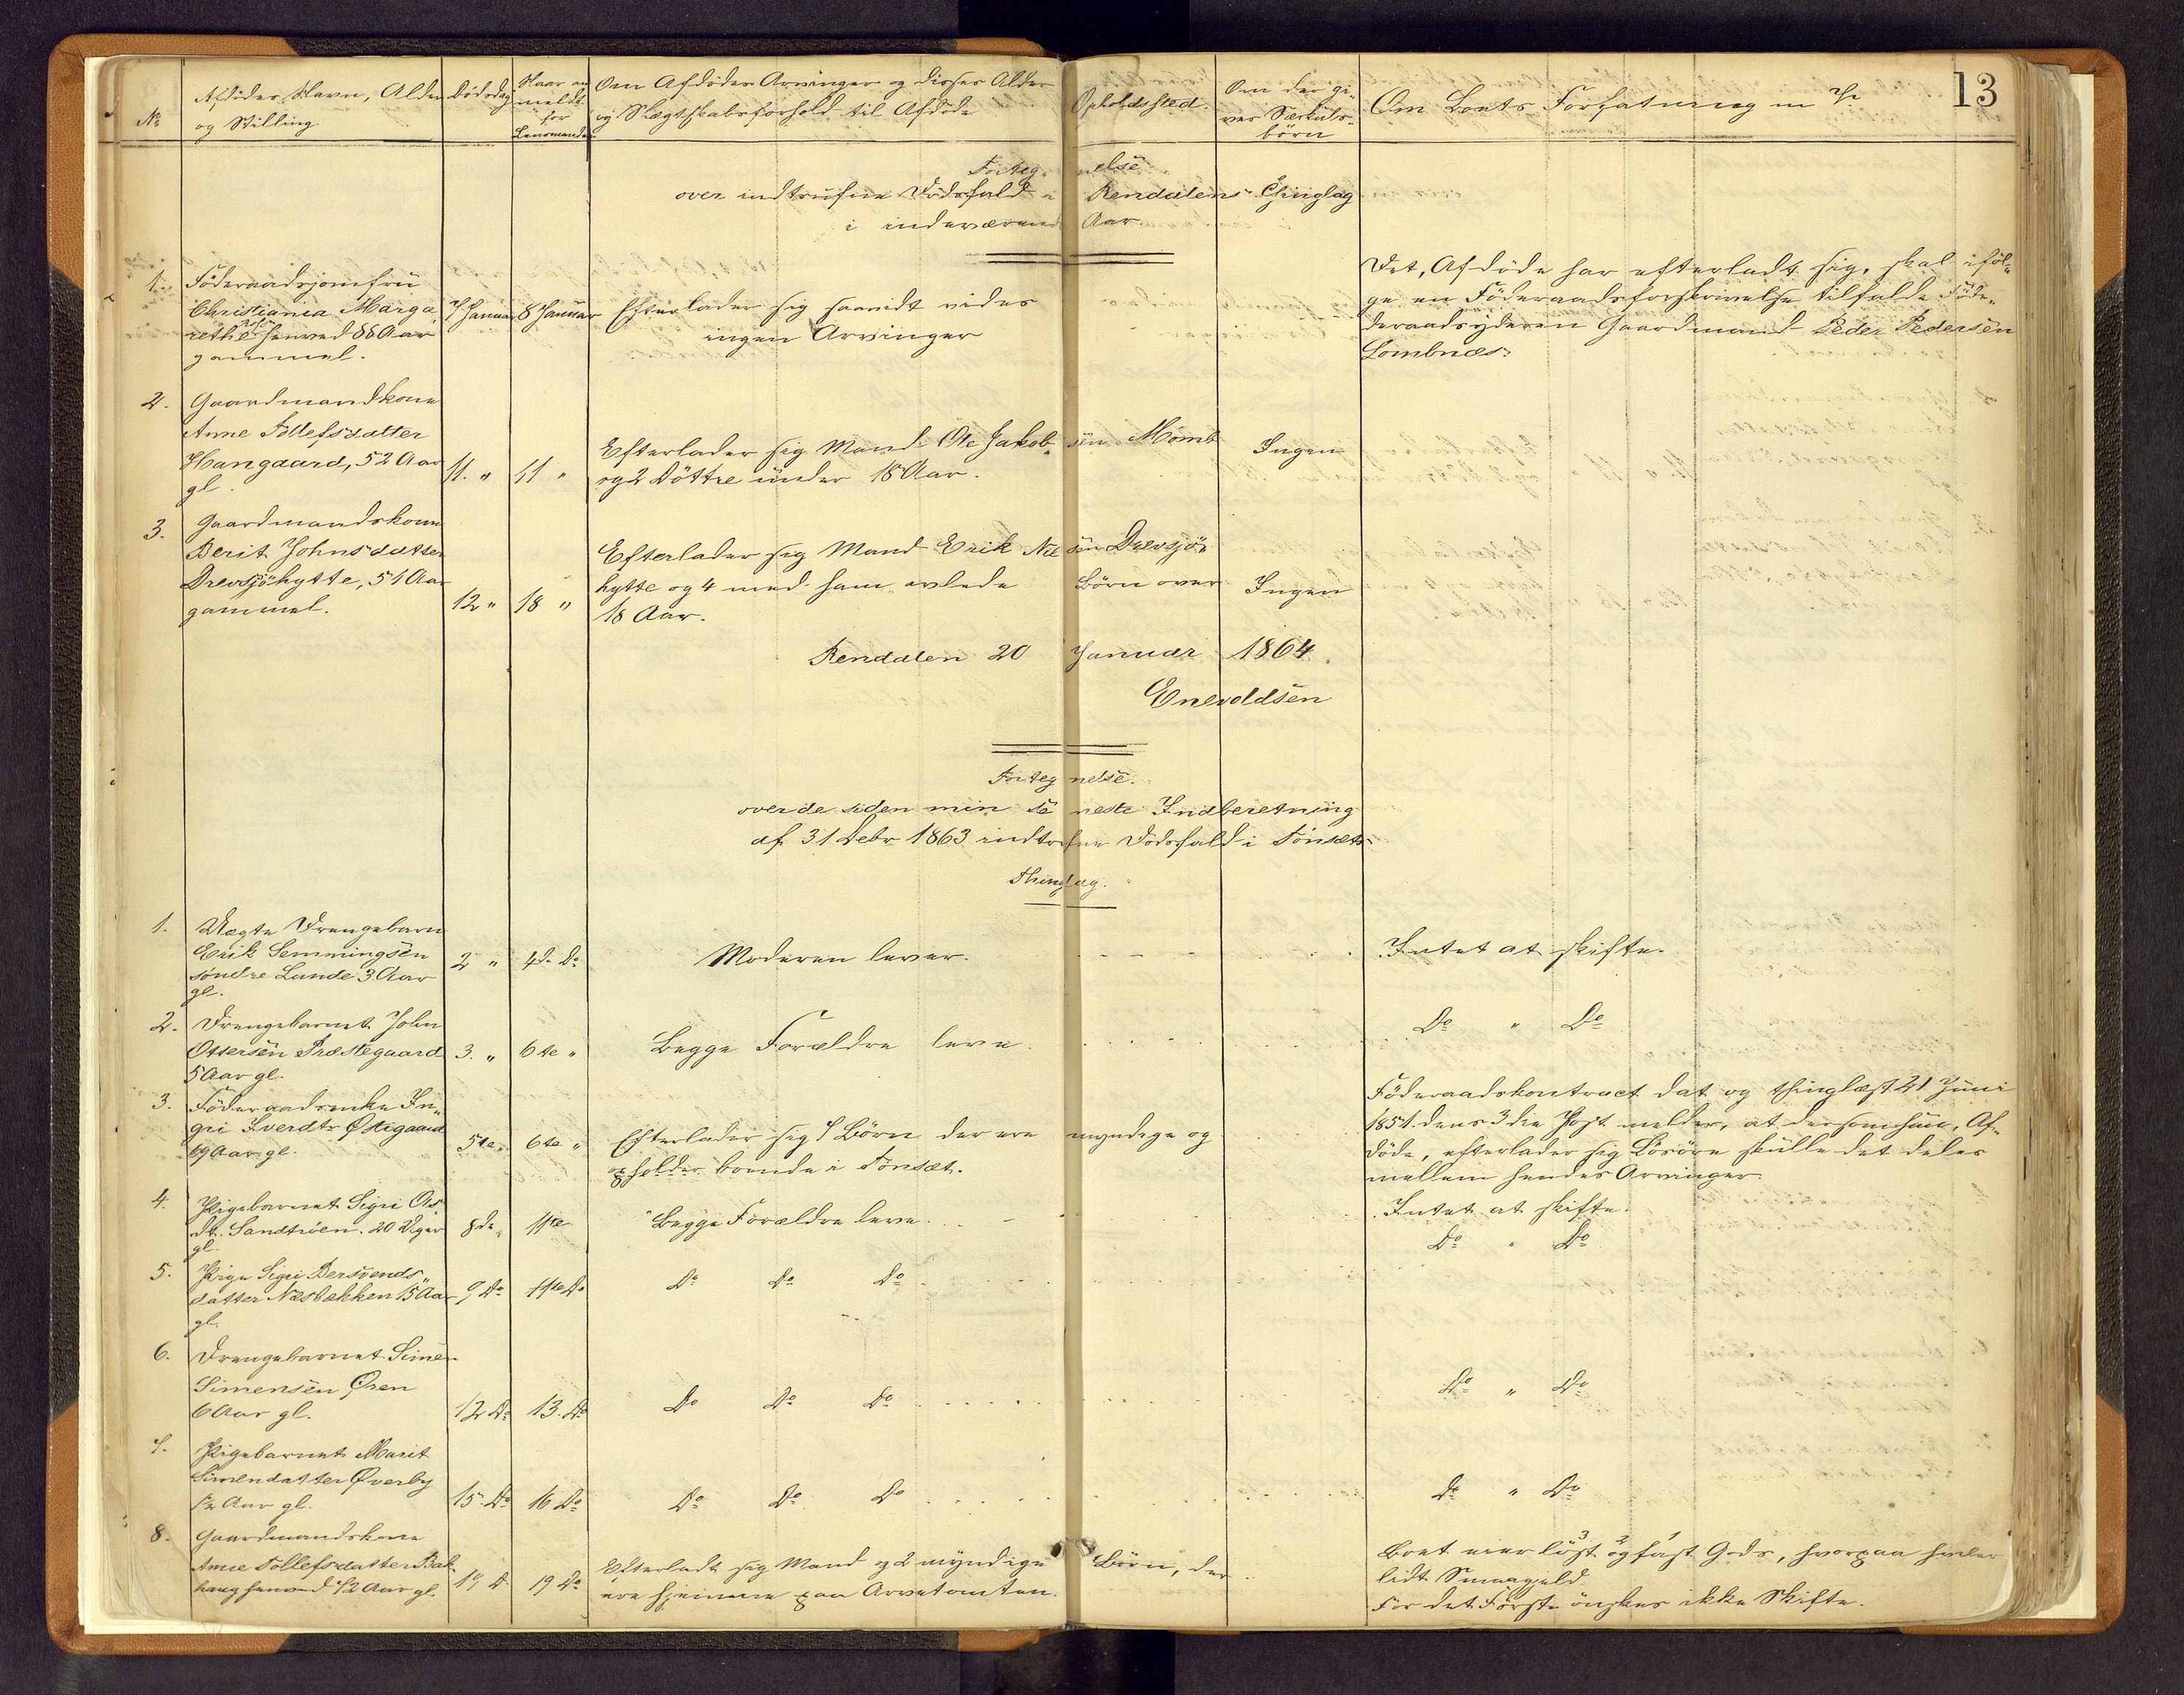 13
No
Afdödes Navn, Alder
og Stilling
Dödsdag
Naar an
meldt
for
Lensmanden
Om Afdödes Arvinger og disses Alder
og Slægtskabsforhold til Afdöde
Opholdssted.
Om der gi-
ves Særkuls-
börn
Om Boets Forfatning m V
Forteg nelse
over indtrufne Dödsfald i Rendalens Thinglag
i indeværende Aar
1. Föderaadsjomfru
Christiania Marga,
rethe henved 88 Aar
gammel.
7 Januar 8 Januar
Efterlader sig saavidt vides
ingen Arvinger
Det, Afdöde har efterladt sig, skal iföl-
ge en Föderaadsforskrivelse tilfalde Föde-
deraadsyderen Gaardmand Peder Pedersen
Lombnæs.
2. Gaardmandkone
Anne Tollefsdatter
Hangaard, 52 Aar
gl.
11. " 11 "
Efterlader sig Mand Ole Jakob- sen Momb
og 2 Döttre under 18 Aar.
Ingen
3. Gaardmandskone
Berit Johnsdatter
Drevsjöhytte, 51 Aar
gammel.
12 " 18 "
Efterlader sig Mand Erik Nil sen Drevsjö-
hytte og 4 med ham avlede Börn over
18 Aar.
Ingen
Rendalen 20 Januar 1864.
Enevoldsen
Forteg nelse.
over de siden min se neste Indberetning
af 31 Debr 1863 indtrufne Dödsfald i Tönsæts
Thinglag.
1. Uægte Drengebarn
Erik Semmingsen
söndre Lunde 3 Aar
gl.
2 " 4d. Do
Moderen lever.
Intet at skifte.
2. Drengebarnet John
Ottersen Præstegaard
5 Aar gl.
3. " 6te "
Begge Forældre leve.
Do " Do
3. Föderaadsenke In-
gri Iverdtr Østigaard
69 Aar gl.
5te " 6te "
Efterlader sig 7 Börn der ere myndige og
opholder boende i Tönsæt.
Föderaadskontract dat og thinglæst 21 Juni
1851. dens 3die Post melder, at dersom hun, Af-
döde, efterlader sig Lösöre skulle det deles
mellem hendes Arvinger.
4. Pigebarnet Sigri Ols,
dt. Sandtröen. 20 Uger
gl.
8de " 11te
Begge Forældre leve.
Intet at skifte.
Do " Do
5. Pige Sigri Bersvends,,
datter Næsbækken 15 Aar
gl.
9 Do 11te Do
Do Do Do
6. Drengebarnet Simen
Simensen Øren
6 Aar gl.
12 Do 13. Do
Do Do Do
Do " Do
7. Pigebarnet Marit
Simendatter Øverby
1/2 Aar gl.
15. Do 16 Do
Do Do Do
Do " Do
8. Gaardmandskone
Anne Tollefsdatter Bak
haug henved 72 Aar gl.
17 D. 19 Do
Efterladt sig Mand og 2 myndige Börn, der
ere hjemme paa Arvetomten.
Boet eier löst og fast Gods, hvorpaa hviler
lidt Smaagjeld.
For det Förste önskes ikke Skifte.